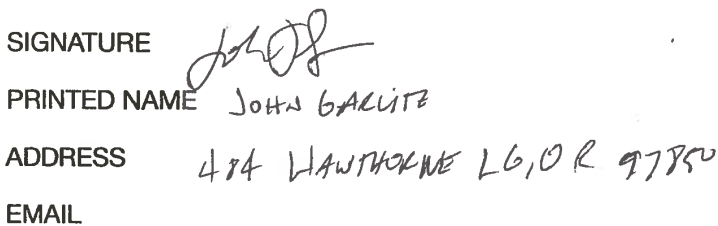 SIGNATURE
PRINTED NAME JOHN GARLITZ
ADDRESS 484 HAWTHORNE LG, OR 97850
EMAIL